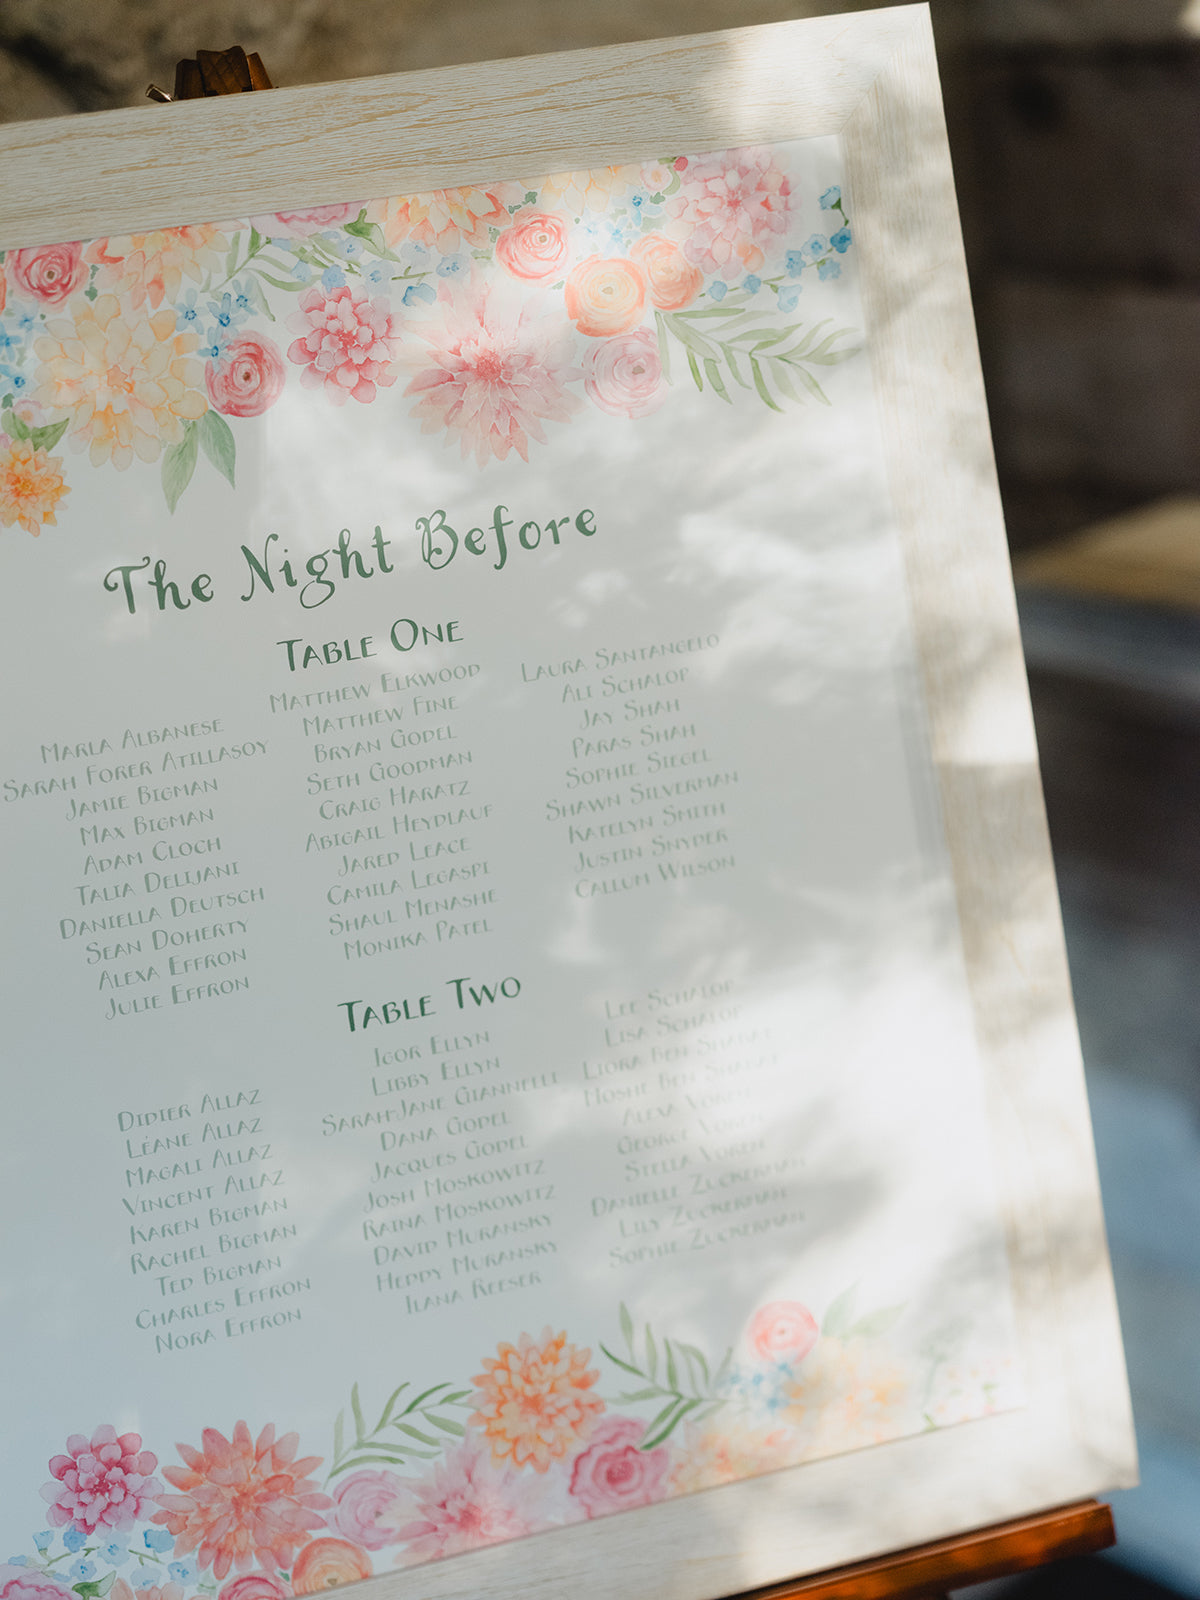 The Night Before
Table One
Marla Albanese
Sarah Forer Atillasoy
Jamie Bigman
Max Bigman
Adam Cloch
Talia Delijani
Daniella Deutsch
Sean Doherty
Alexa Effron
Julie Effron
Matthew Elkwood
Matthew Fine
Bryan Godel
Seth Goodman
Craig Haratz
Abigail Heydlauf
Jared Leace
Camila Legaspi
Shaul Menashe
Monika Patel
Laura Santangelo
Ali Schalop
Jay Shah
Paras Shah
Sophie Siegel
Shawn Silverman
Katelyn Smith
Justin Snyder
Callum Wilson
Table Two
Didier Allaz
Léane Allaz
Magali Allaz
Vincent Allaz
Karen Bigman
Rachel Bigman
Ted Bigman
Charles Effron
Nora Effron
Igor Ellyn
Libby Ellyn
Sarah-Jane Giannelli
Dana Godel
Jacques Godel
Josh Moskowitz
Raina Moskowitz
David Muransky
Heddy Muransky
Ilana Reeser
Lee Schalop
Lisa Schalop
Liora Ben-Shabat
Moshe Ben-Shabat
Alexa Voren
George Voren
Stella Voren
Danielle Zuckerman
Lily Zuckerman
Sophie Zuckerman